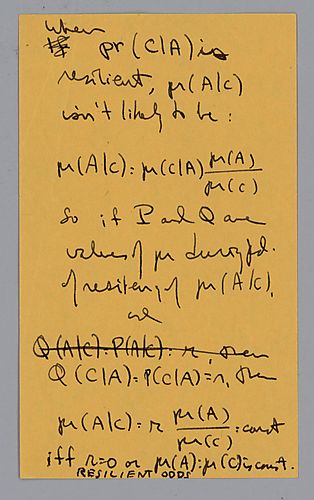 when
pr(C|A) is
resilient, pr(A|C)
isn't likely to be:
pr(A|C) = pr(C|A) pr(A)/pr(C)
So if P and Q are
values of pr during pd.
of resiliency of pr(A|C),
and
Q(A|C) = P(A|C) = r, then
Q(C|A) = P(C|A) = r, then
pr(A|C) = r pr(A)/pr(C) = const
iff r=0 or pr(A):pr(C) is const.
RESILIENT ODDS